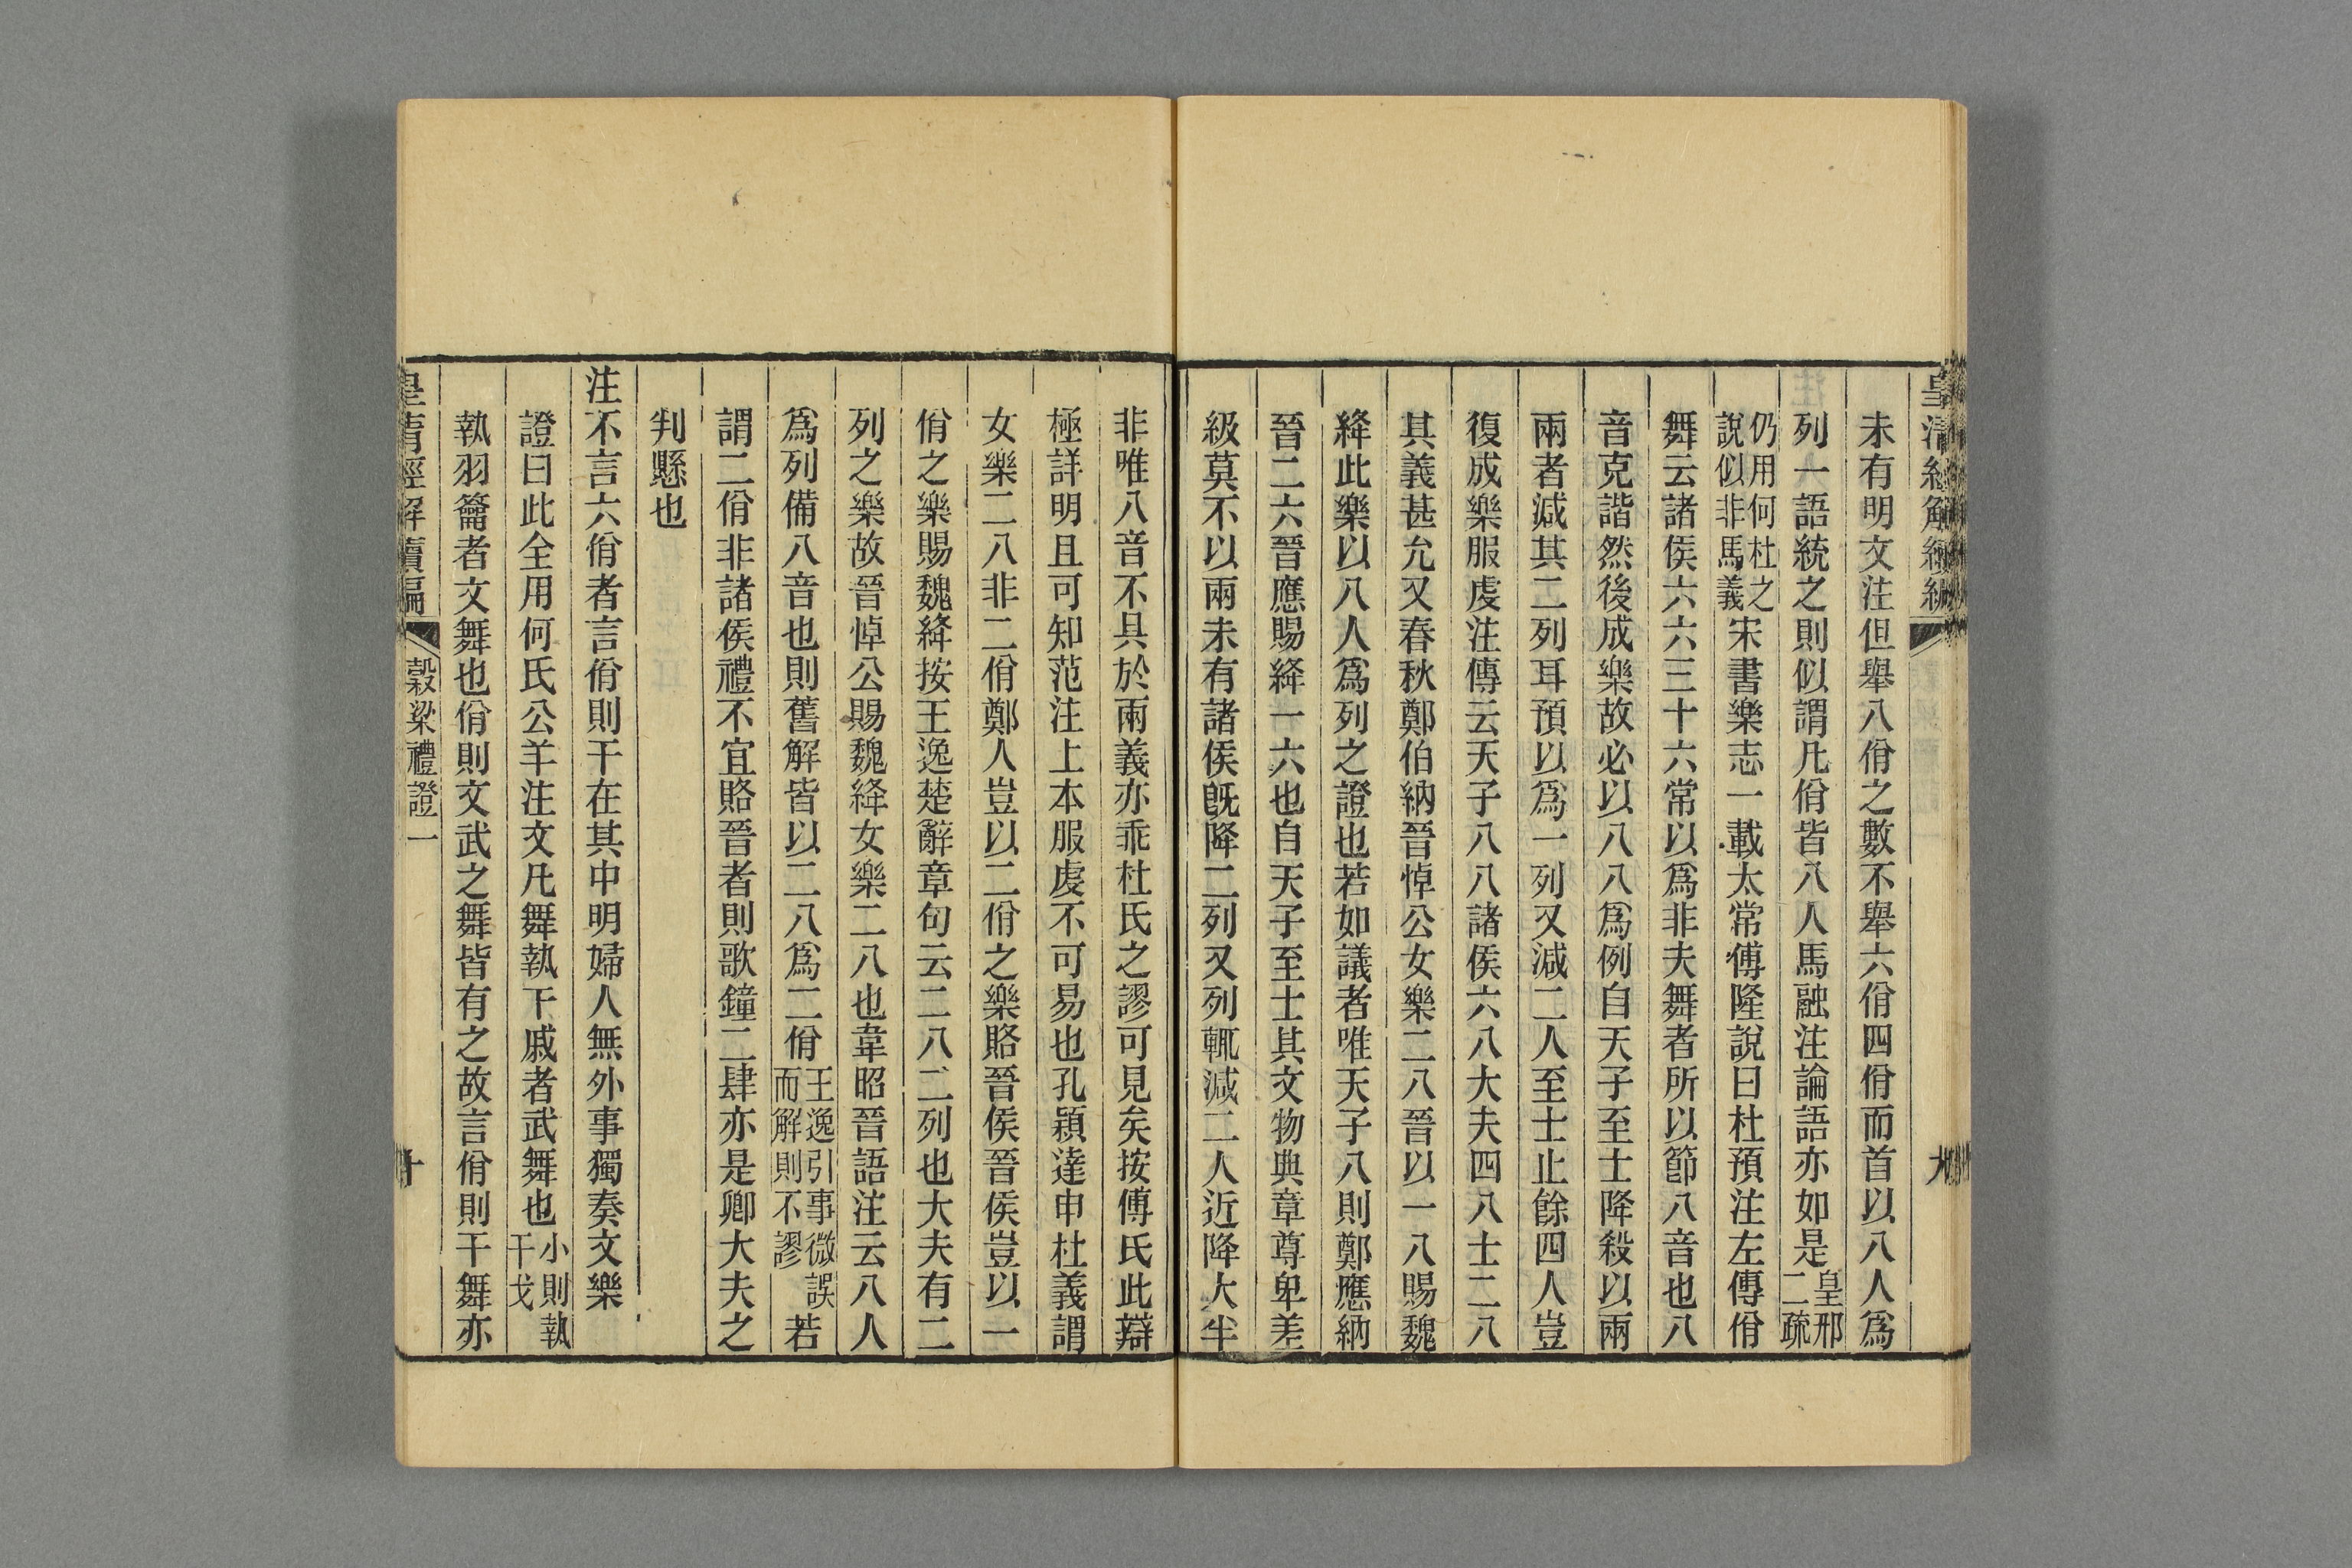 皇清經解續編
九
未有明文注但舉八佾之數不舉六佾四佾而首以八人爲
列一語統之則似謂凡佾皆八人馬融注論語亦如是皇邢二疏
仍用何杜之說似非馬義宋書樂志一載太常傅隆說曰杜預注左傳佾
舞云諸侯六六三十六常以爲非夫舞者所以節八音也八
音克諧然後成樂故必以八八爲例自天子至士降殺以兩
兩者減其二列耳預以爲一列又減二人至士止餘四人豈
復成樂服虔注傳云天子八八諸侯六八大夫四八士二八
其義甚允又春秋鄭伯納晉悼公女樂二八晉以一八賜魏
絳此樂以八人爲列之證也若如議者唯天子八則鄭應納
晉二六晉應賜絳一六也自天子至士其文物典章尊卑差
級莫不以兩未有諸侯既降二列又列輒減二人近降大半
非唯八音不具於兩義亦乖杜氏之謬可見矣按傅氏此辯
極詳明且可知范注上本服虔不可易也孔穎達申杜義謂
女樂二八非二佾鄭人豈以二佾之樂賂晉侯晉侯豈以一
佾之樂賜魏絳按王逸楚辭章句云二八二列也大夫有二
列之樂故晉悼公賜魏絳女樂二八也韋昭晉語注云八人
爲列備八音也則舊解皆以二八爲二佾王逸引事微誤而解則不謬若
謂二佾非諸侯禮不宜賂晉者則歌鐘二肆亦是卿大夫之
判縣也
注不言六佾者言佾則干在其中明婦人無外事獨奏文樂
證曰此全用何氏公羊注文凡舞執干戚者武舞也小則執干戈
執羽籥者文舞也佾則文武之舞皆有之故言佾則干舞亦
皇清經解續編
穀梁禮證一
十